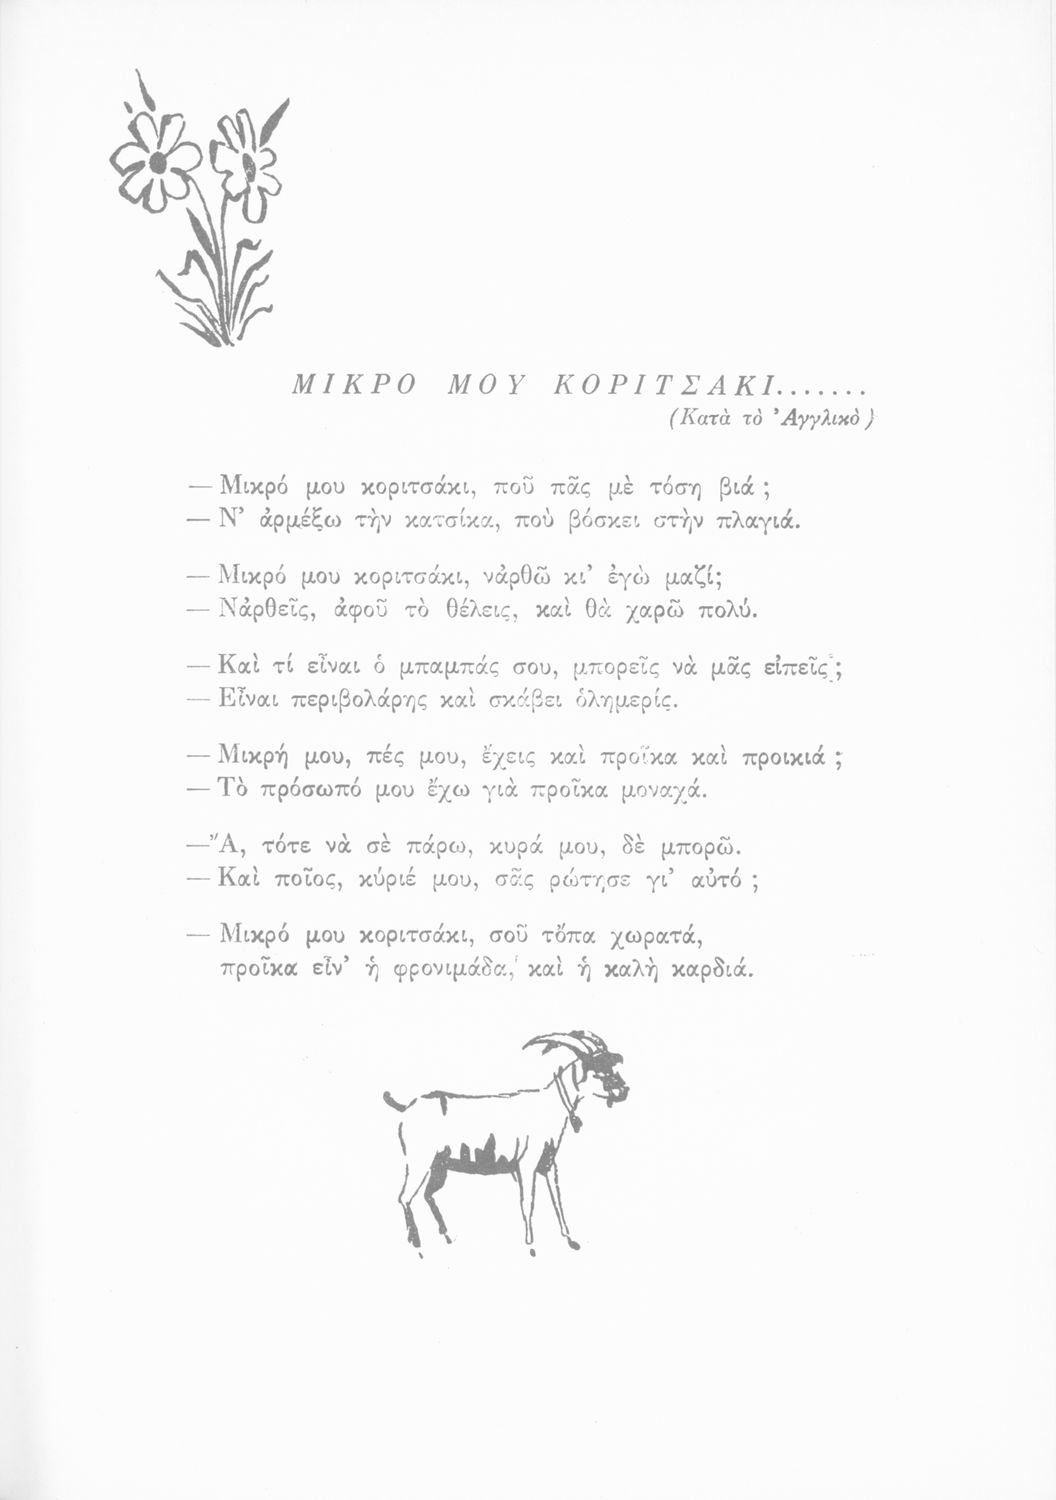 ΜΙΚΡΟ ΜΟΥ ΚΟΡΙΤΣΑΚΙ.......
(Κατὰ τὸ Ἀγγλικὸ)
— Μικρό μου κοριτσάκι, ποῦ πᾶς μὲ τόση βιά ;
— Ν’ ἀρμέξω τὴν κατσίκα, ποὺ βόσκει στὴν πλαγιά.
— Μικρό μου κοριτσάκι, νἀρθῶ κι’ ἐγὼ μαζί;
— Νἀρθεῖς, ἀφοῦ τὸ θέλεις, καὶ θὰ χαρῶ πολύ.
— Καὶ τί εἶναι ὁ μπαμπάς σου, μπορεῖς νὰ μᾶς εἰπεῖς ;
— Εἶναι περιβολάρης καὶ σκάβει ὁλημερίς.
— Μικρή μου, πές μου, ἔχεις καὶ προῖκα καὶ προικιά ;
— Τὸ πρόσωπό μου ἔχω γιὰ προῖκα μοναχά.
— Ἄ, τότε νὰ σὲ πάρω, κυρά μου, δὲ μπορῶ.
— Καὶ ποῖος, κύριέ μου, σᾶς ρώτησε γι’ αὐτό ;
— Μικρό μου κοριτσάκι, σοῦ τὄπα χωρατά,
προῖκα εἶν’ ἡ φρονιμάδα, καὶ ἡ καλὴ καρδιά.